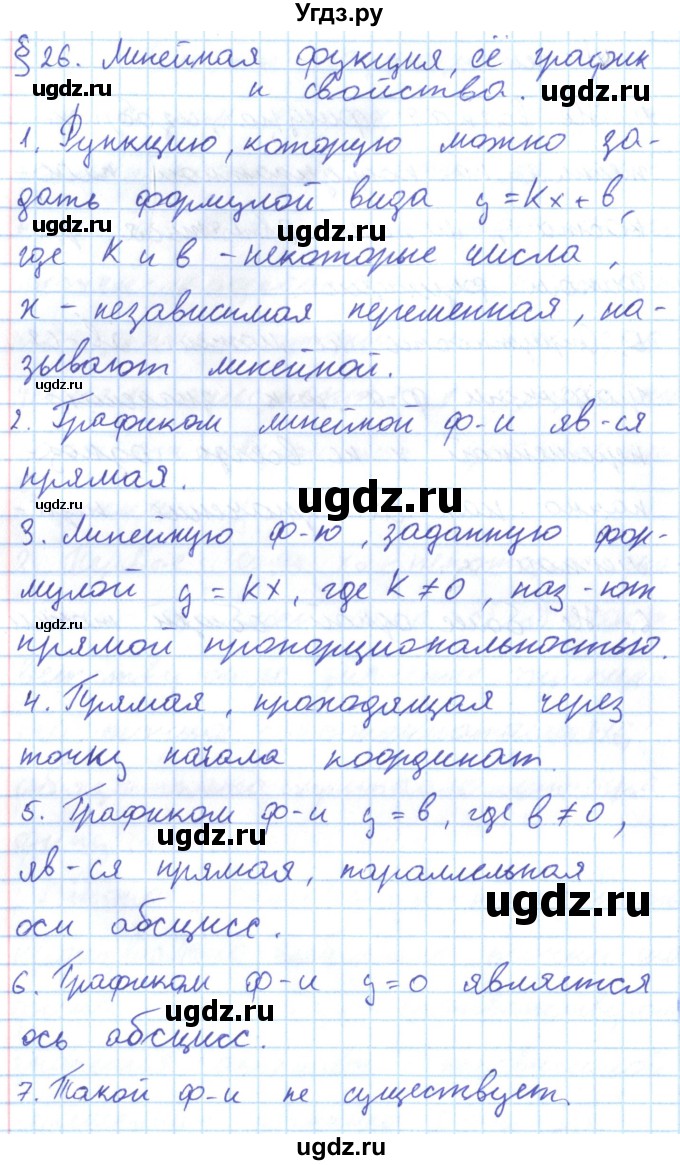 Угдз.ру
§ 26. Линейная функция, её график
и свойства.
ugdz.ru
ugdz.ru
1. Функцию, которую можно за-
дать формулой вида y = Kx + в,
ugdz.ru
ugdz.ru
где K и в – некоторые числа,
x – независимая переменная, на-
ugdz.ru
зывают линейной.
ugdz.ru
2. Графиком линейной ф-и яв-ся
прямая.
ugdz.ru
3. Линейную ф-ю, заданную фор-
мулой y = Kx, где K ≠ 0, наз-ют
ugdz.ru
ugdz.ru
прямой пропорциональностью.
4. Прямая, проходящая через
ugdz.ru
точку начала координат.
5. Графиком ф-и y = в, где в ≠ 0,
ugdz.ru
яв-ся прямая, параллельная
ugdz.ru
оси абсцисс.
6. Графиком ф-и y = 0 является
ugdz.ru
ось абсцисс.
7. Такой ф-и не существует.
ugdz.ru
ugdz.ru